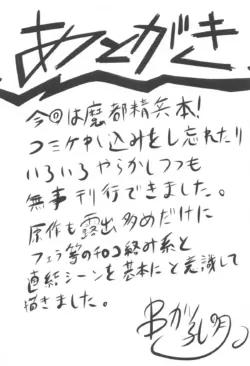 あとがき
今回は魔都精兵本!
コミケ申し込みをし忘れたり
いろいろやらかしつつも
無事刊行できました。
原作も露出多めだけに
フェラ等のチ○コ絡み系と
直結シーンを基本にと意識して
描きました。